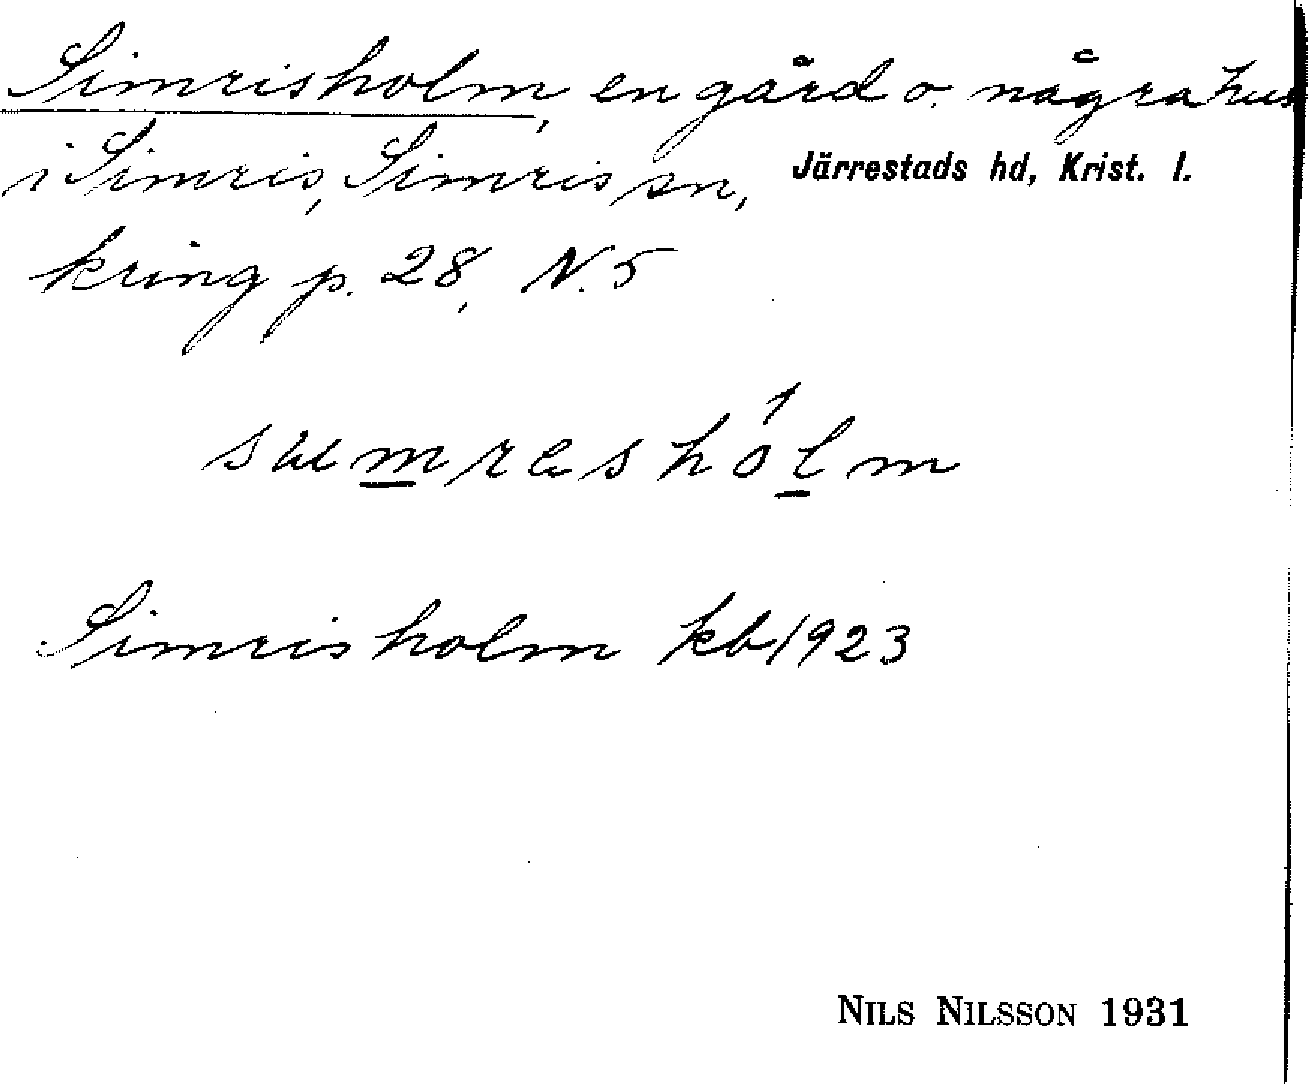 Simrisholm, en gård o. några hus
i Simris, Simris sn, Järrestads hd, Krist. l.
kring p. 28, N. 5
Simrisholm kb 1923
NILS NILSSON 1931